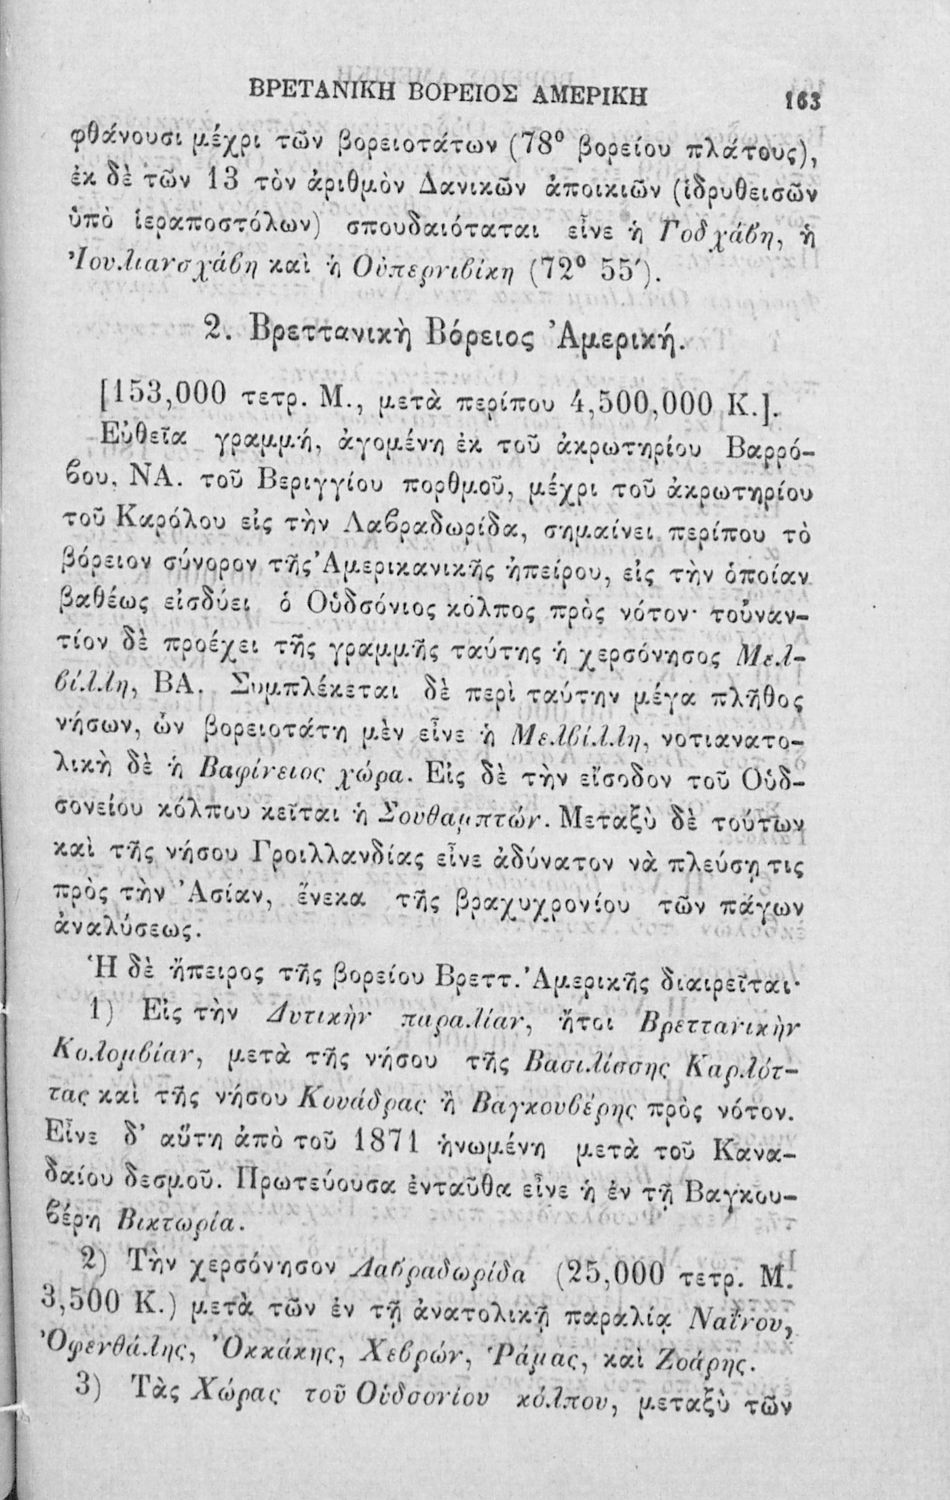 ΒΡΕΤΑΝΙΚΗ ΒΟΡΕΙΟΣ ΑΜΕΡΙΚΗ 163
φθάνουσι μέχρι τῶν βορειοτάτων (78° βορείου πλάτους),
ἐκ δὲ τῶν 13 τὸν ἀριθμὸν Δανικῶν ἀποικιῶν (ἱδρυθεισῶν
ὑπὸ ἱεραποστόλων) σπουδαιόταται εἶνε ἡ Γοδχάβη, ἡ
Ἰουλιανσχάβη καὶ ἡ Οὐπερνιβίκη (72° 55′).
2. Βρεττανικὴ Βόρειος Ἀμερική.
[153,000 τετρ. Μ., μετὰ περίπου 4,500,000 Κ.].
Εὐθεῖα γραμμή, ἀγομένη ἐκ τοῦ ἀκρωτηρίου Βαρρό-
βου, ΝΑ. τοῦ Βεριγγίου πορθμοῦ, μέχρι τοῦ ἀκρωτηρίου
τοῦ Καρόλου εἰς τὴν Λαβραδωρίδα, σημαίνει περίπου τὸ
βόρειον σύνορον τῆς Ἀμερικανικῆς ἠπείρου, εἰς τὴν ὁποίαν
βαθέως εἰσδύει ὁ Οὑδσόνιος κόλπος πρὸς νότον· τοὐναν-
τίον δὲ προέχει τῆς γραμμῆς ταύτης ἡ χερσόνησος Μελ-
βίλλη, ΒΑ. Συμπλέκεται δὲ περὶ ταύτην μέγα πλῆθος
νήσων, ὧν βορειοτάτη μὲν εἶνε ἡ Μελβίλλη, νοτιανατο-
λικὴ δὲ ἡ Βαφίνειος χώρα. Εἰς δὲ τὴν εἴσοδον τοῦ Οὑδ-
σονείου κόλπου κεῖται ἡ Σουθαμπτών. Μεταξὺ δὲ τούτων
καὶ τῆς νήσου Γροιλλανδίας εἶνε ἀδύνατον νὰ πλεύσῃ τις
πρὸς τὴν Ἀσίαν, ἕνεκα τῆς βραχυχρονίου τῶν πάγων
ἀναλύσεως.
Ἡ δὲ ἤπειρος τῆς βορείου Βρεττ. Ἀμερικῆς διαιρεῖται·
1) Εἰς τὴν Δυτικὴν παραλίαν, ἤτοι Βρεττανικὴν
Κολομβίαν, μετὰ τῆς νήσου τῆς Βασιλίσσης Καρλότ-
τας καὶ τῆς νήσου Κουάδρας ἢ Βαγκουβέρης πρὸς νότον.
Εἶνε δ’ αὕτη ἀπὸ τοῦ 1871 ἡνωμένη μετὰ τοῦ Κανα-
δαίου δεσμοῦ. Πρωτεύουσα ἐνταῦθα εἶνε ἡ ἐν τῇ Βαγκου-
βέρῃ Βικτωρία.
2) Τὴν χερσόνησον Λαβραδωρίδα (25,000 τετρ. Μ.
3,500 Κ.) μετὰ τῶν ἐν τῇ ἀνατολικῇ παραλίᾳ Ναΐνου,
Ὀφενθάλης, Ὀκκάκης, Χεβρών, Ῥάμας, καὶ Ζοάρης.
3) Τὰς Χώρας τοῦ Οὑδσονίου κόλπου, μεταξὺ τῶν